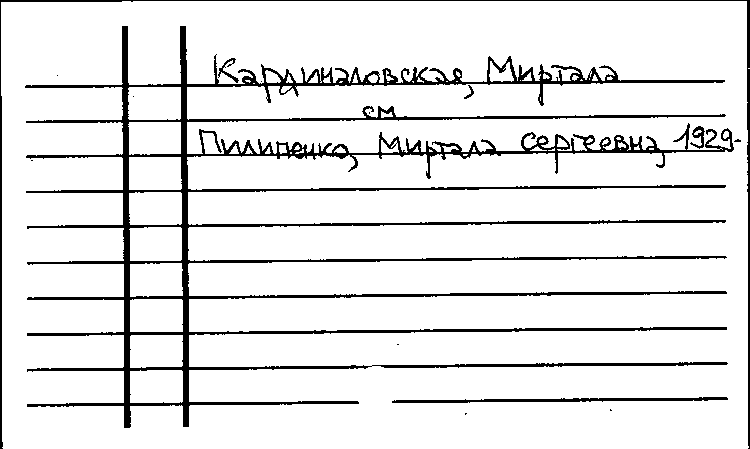 Кардиналовская, Миртала
см.
Пилипенко, Миртала Сергеевна, 1929-